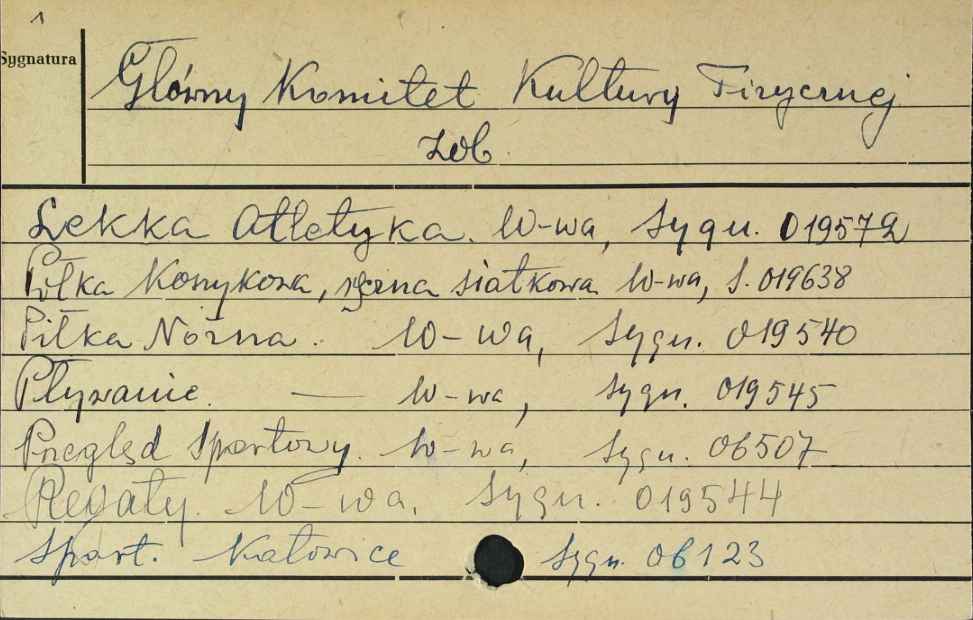 1
Sygnatura
Główny Komitet Kultury Fizycznej
zob.
Lekka Atletyka. W-wa, Sygn. 019572
Piłka Koszykowa, ręczna siatkowa W-wa, S. 019638
Piłka Nożna. W-wa, Sygn. 019540
Pływanie. — W-wa, Sygn. 019545
Przegląd Sportowy. W-wa, Sygn. 06507
Regaty. W-wa. Sygn. 019544
Sport. Katowice Sygn. 06123